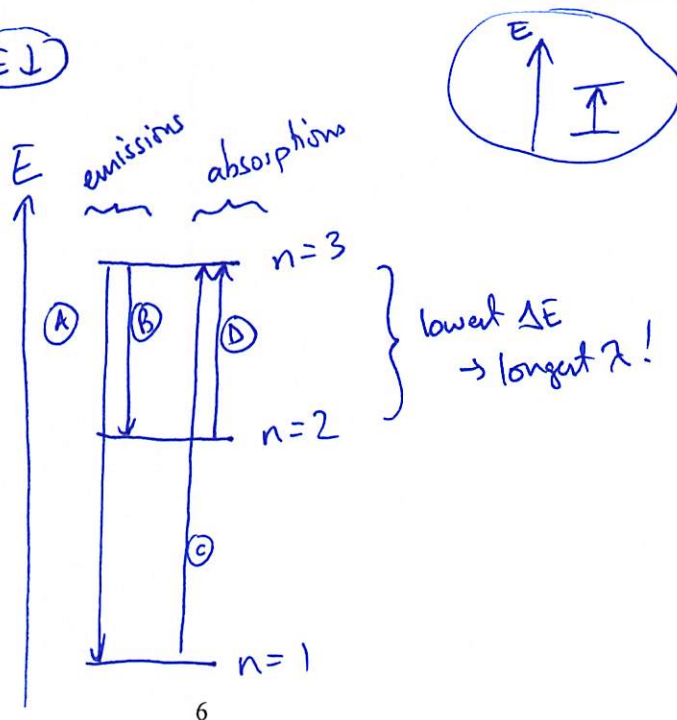 E↓
E
E
emissions absorptions
n=3
A B D
lowest ΔE
→ longest λ!
n=2
C
n=1
6